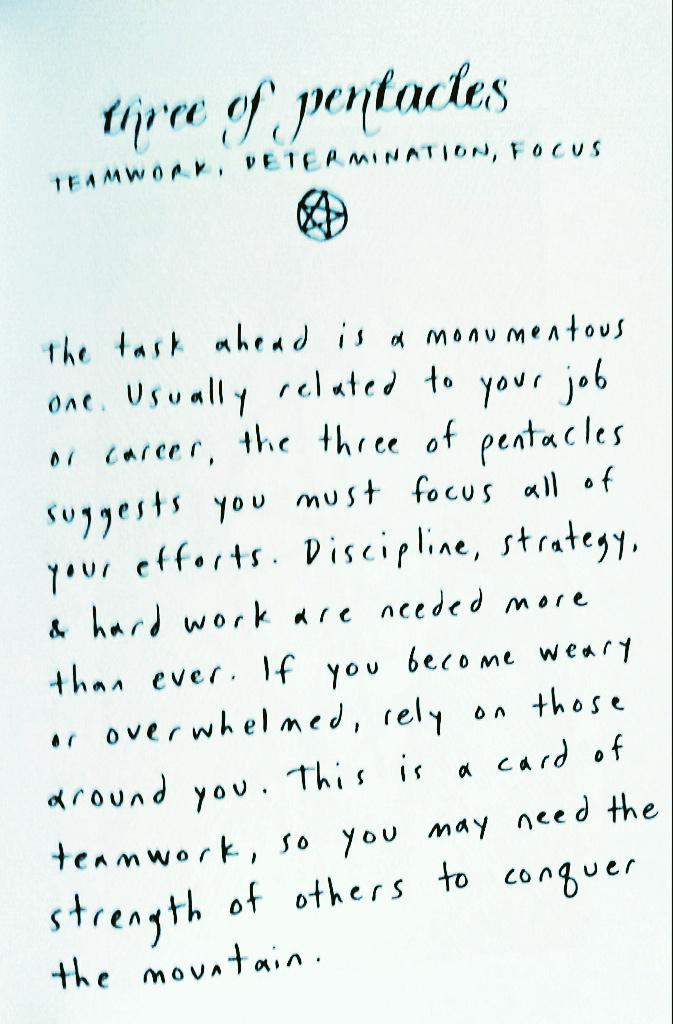 three of pentacles
TEAMWORK, DETERMINATION, FOCUS
The task ahead is a monumentous
one. Usually related to your job
or career, the three of pentacles
suggests you must focus all of
your efforts. Discipline, strategy,
& hard work are needed more
than ever. If you become weary
or overwhelmed, rely on those
around you. This is a card of
teamwork, so you may need the
strength of others to conquer
the mountain.